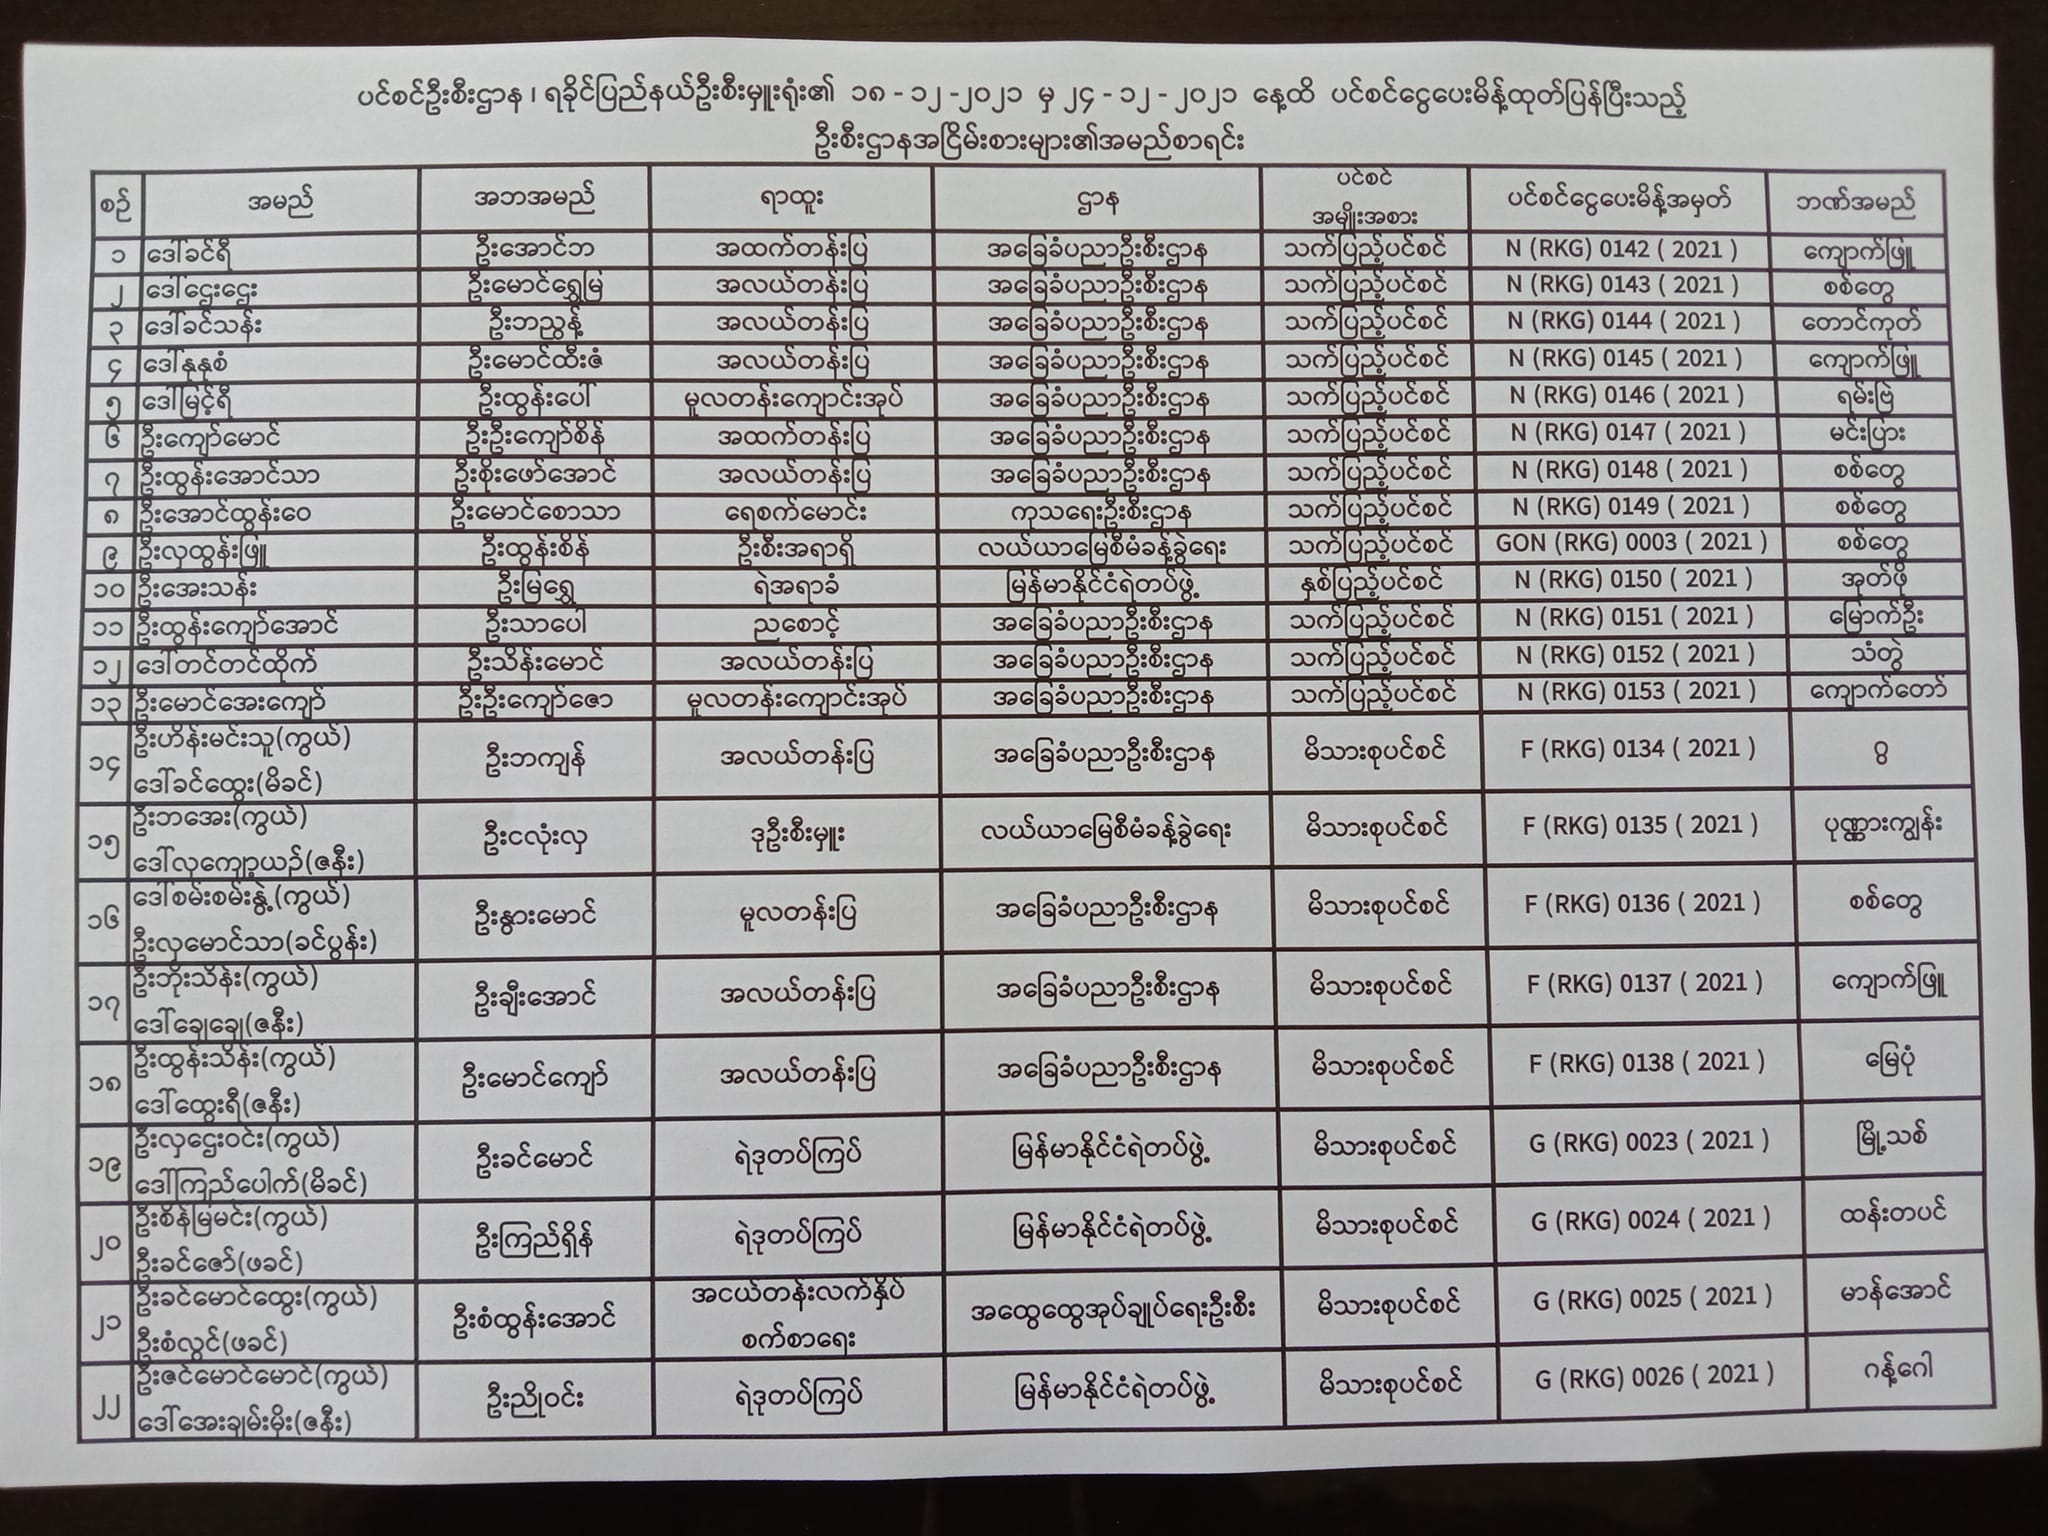 ပင်စင်ဦးစီးဌာန၊ ရခိုင်ပြည်နယ်ဦးစီးမှူးရုံး၏ ၁၈ - ၁၂ -၂၀၂၁ မှ ၂၄ - ၁၂ - ၂၀၂၁ နေ့ထိ ပင်စင်ငွေပေးမိန့်ထုတ်ပြန်ပြီးသည့်
ဦးစီးဌာနအငြိမ်းစားများ၏အမည်စာရင်း
စဉ် အမည် အဘအမည် ရာထူး ဌာန ပင်စင် အမျိုးအစား ပင်စင်ငွေပေးမိန့်အမှတ် ဘဏ်အမည်
၁ ဒေါ်ခင်ရီ ဦးအောင်ဘ အထက်တန်းပြ အခြေခံပညာဦးစီးဌာန သက်ပြည့်ပင်စင် N (RKG) 0142 ( 2021 ) ကျောက်ဖြူ
၂ ဒေါ်ဌေးဌေး ဦးမောင်ရွှေမြ အလယ်တန်းပြ အခြေခံပညာဦးစီးဌာန သက်ပြည့်ပင်စင် N (RKG) 0143 ( 2021 ) စစ်တွေ
၃ ဒေါ်ခင်သန်း ဦးဘညွန့် အလယ်တန်းပြ အခြေခံပညာဦးစီးဌာန သက်ပြည့်ပင်စင် N (RKG) 0144 ( 2021 ) တောင်ကုတ်
၄ ဒေါ်နုနုစံ ဦးမောင်ထီးဇံ အလယ်တန်းပြ အခြေခံပညာဦးစီးဌာန သက်ပြည့်ပင်စင် N (RKG) 0145 ( 2021 ) ကျောက်ဖြူ
၅ ဒေါ်မြင့်ရီ ဦးထွန်းပေါ် မူလတန်းကျောင်းအုပ် အခြေခံပညာဦးစီးဌာန သက်ပြည့်ပင်စင် N (RKG) 0146 ( 2021 ) ရမ်းဗြဲ
၆ ဦးကျော်မောင် ဦးဦးကျော်စိန် အထက်တန်းပြ အခြေခံပညာဦးစီးဌာန သက်ပြည့်ပင်စင် N (RKG) 0147 ( 2021 ) မင်းပြား
၇ ဦးထွန်းအောင်သာ ဦးစိုးဖော်အောင် အလယ်တန်းပြ အခြေခံပညာဦးစီးဌာန သက်ပြည့်ပင်စင် N (RKG) 0148 ( 2021 ) စစ်တွေ
၈ ဦးအောင်ထွန်းဝေ ဦးမောင်စောသာ ရေစက်မောင်း ကုသရေးဦးစီးဌာန သက်ပြည့်ပင်စင် N (RKG) 0149 ( 2021 ) စစ်တွေ
၉ ဦးလှထွန်းဖြူ ဦးထွန်းစိန် ဦးစီးအရာရှိ လယ်ယာမြေစီမံခန့်ခွဲရေး သက်ပြည့်ပင်စင် GON (RKG) 0003 ( 2021 ) စစ်တွေ
၁၀ ဦးအေးသန်း ဦးမြရွှေ ရဲအရာခံ မြန်မာနိုင်ငံရဲတပ်ဖွဲ့ နှစ်ပြည့်ပင်စင် N (RKG) 0150 ( 2021 ) အုတ်ဖို
၁၁ ဦးထွန်းကျော်အောင် ဦးသာပေါ ညစောင့် အခြေခံပညာဦးစီးဌာန သက်ပြည့်ပင်စင် N (RKG) 0151 ( 2021 ) မြောက်ဦး
၁၂ ဒေါ်တင်တင်ထိုက် ဦးသိန်းမောင် အလယ်တန်းပြ အခြေခံပညာဦးစီးဌာန သက်ပြည့်ပင်စင် N (RKG) 0152 ( 2021 ) သံတွဲ
၁၃ ဦးမောင်အေးကျော် ဦးဦးကျော်ဇော မူလတန်းကျောင်းအုပ် အခြေခံပညာဦးစီးဌာန သက်ပြည့်ပင်စင် N (RKG) 0153 ( 2021 ) ကျောက်တော်
၁၄ ဦးဟိန်းမင်းသူ(ကွယ်) ဒေါ်ခင်ထွေး(မိခင်) ဦးဘကျန် အလယ်တန်းပြ အခြေခံပညာဦးစီးဌာန မိသားစုပင်စင် F (RKG) 0134 ( 2021 ) ဂွ
၁၅ ဦးဘအေး(ကွယ်) ဒေါ်လှကျော့ယဉ်(ဇနီး) ဦးငလုံးလှ ဒုဦးစီးမှူး လယ်ယာမြေစီမံခန့်ခွဲရေး မိသားစုပင်စင် F (RKG) 0135 ( 2021 ) ပုဏ္ဏားကျွန်း
၁၆ ဒေါ်စမ်းစမ်းနွဲ့(ကွယ်) ဦးလှမောင်သာ(ခင်ပွန်း) ဦးနွားမောင် မူလတန်းပြ အခြေခံပညာဦးစီးဌာန မိသားစုပင်စင် F (RKG) 0136 ( 2021 ) စစ်တွေ
၁၇ ဦးဘိုးသိန်း(ကွယ်) ဒေါ်ချေချေ(ဇနီး) ဦးချီးအောင် အလယ်တန်းပြ အခြေခံပညာဦးစီးဌာန မိသားစုပင်စင် F (RKG) 0137 ( 2021 ) ကျောက်ဖြူ
၁၈ ဦးထွန်းသိန်း(ကွယ်) ဒေါ်ထွေးရီ(ဇနီး) ဦးမောင်ကျော် အလယ်တန်းပြ အခြေခံပညာဦးစီးဌာန မိသားစုပင်စင် F (RKG) 0138 ( 2021 ) မြေပုံ
၁၉ ဦးလှဌေးဝင်း(ကွယ်) ဒေါ်ကြည်ပေါက်(မိခင်) ဦးခင်မောင် ရဲဒုတပ်ကြပ် မြန်မာနိုင်ငံရဲတပ်ဖွဲ့ မိသားစုပင်စင် G (RKG) 0023 ( 2021 ) မြို့သစ်
၂၀ ဦးစိန်မြမင်း(ကွယ်) ဦးခင်ဇော်(ဖခင်) ဦးကြည်ရှိန် ရဲဒုတပ်ကြပ် မြန်မာနိုင်ငံရဲတပ်ဖွဲ့ မိသားစုပင်စင် G (RKG) 0024 ( 2021 ) ထန်းတပင်
၂၁ ဦးခင်မောင်ထွေး(ကွယ်) ဦးစံလွင်(ဖခင်) ဦးစံထွန်းအောင် အငယ်တန်းလက်နှိပ် စက်စာရေး အထွေထွေအုပ်ချုပ်ရေးဦးစီး မိသားစုပင်စင် G (RKG) 0025 ( 2021 ) မာန်အောင်
၂၂ ဦးဇင်မောင်မောင်(ကွယ်) ဒေါ်အေးချမ်းမိုး(ဇနီး) ဦးညိုဝင်း ရဲဒုတပ်ကြပ် မြန်မာနိုင်ငံရဲတပ်ဖွဲ့ မိသားစုပင်စင် G (RKG) 0026 ( 2021 ) ဂန့်ဂေါ